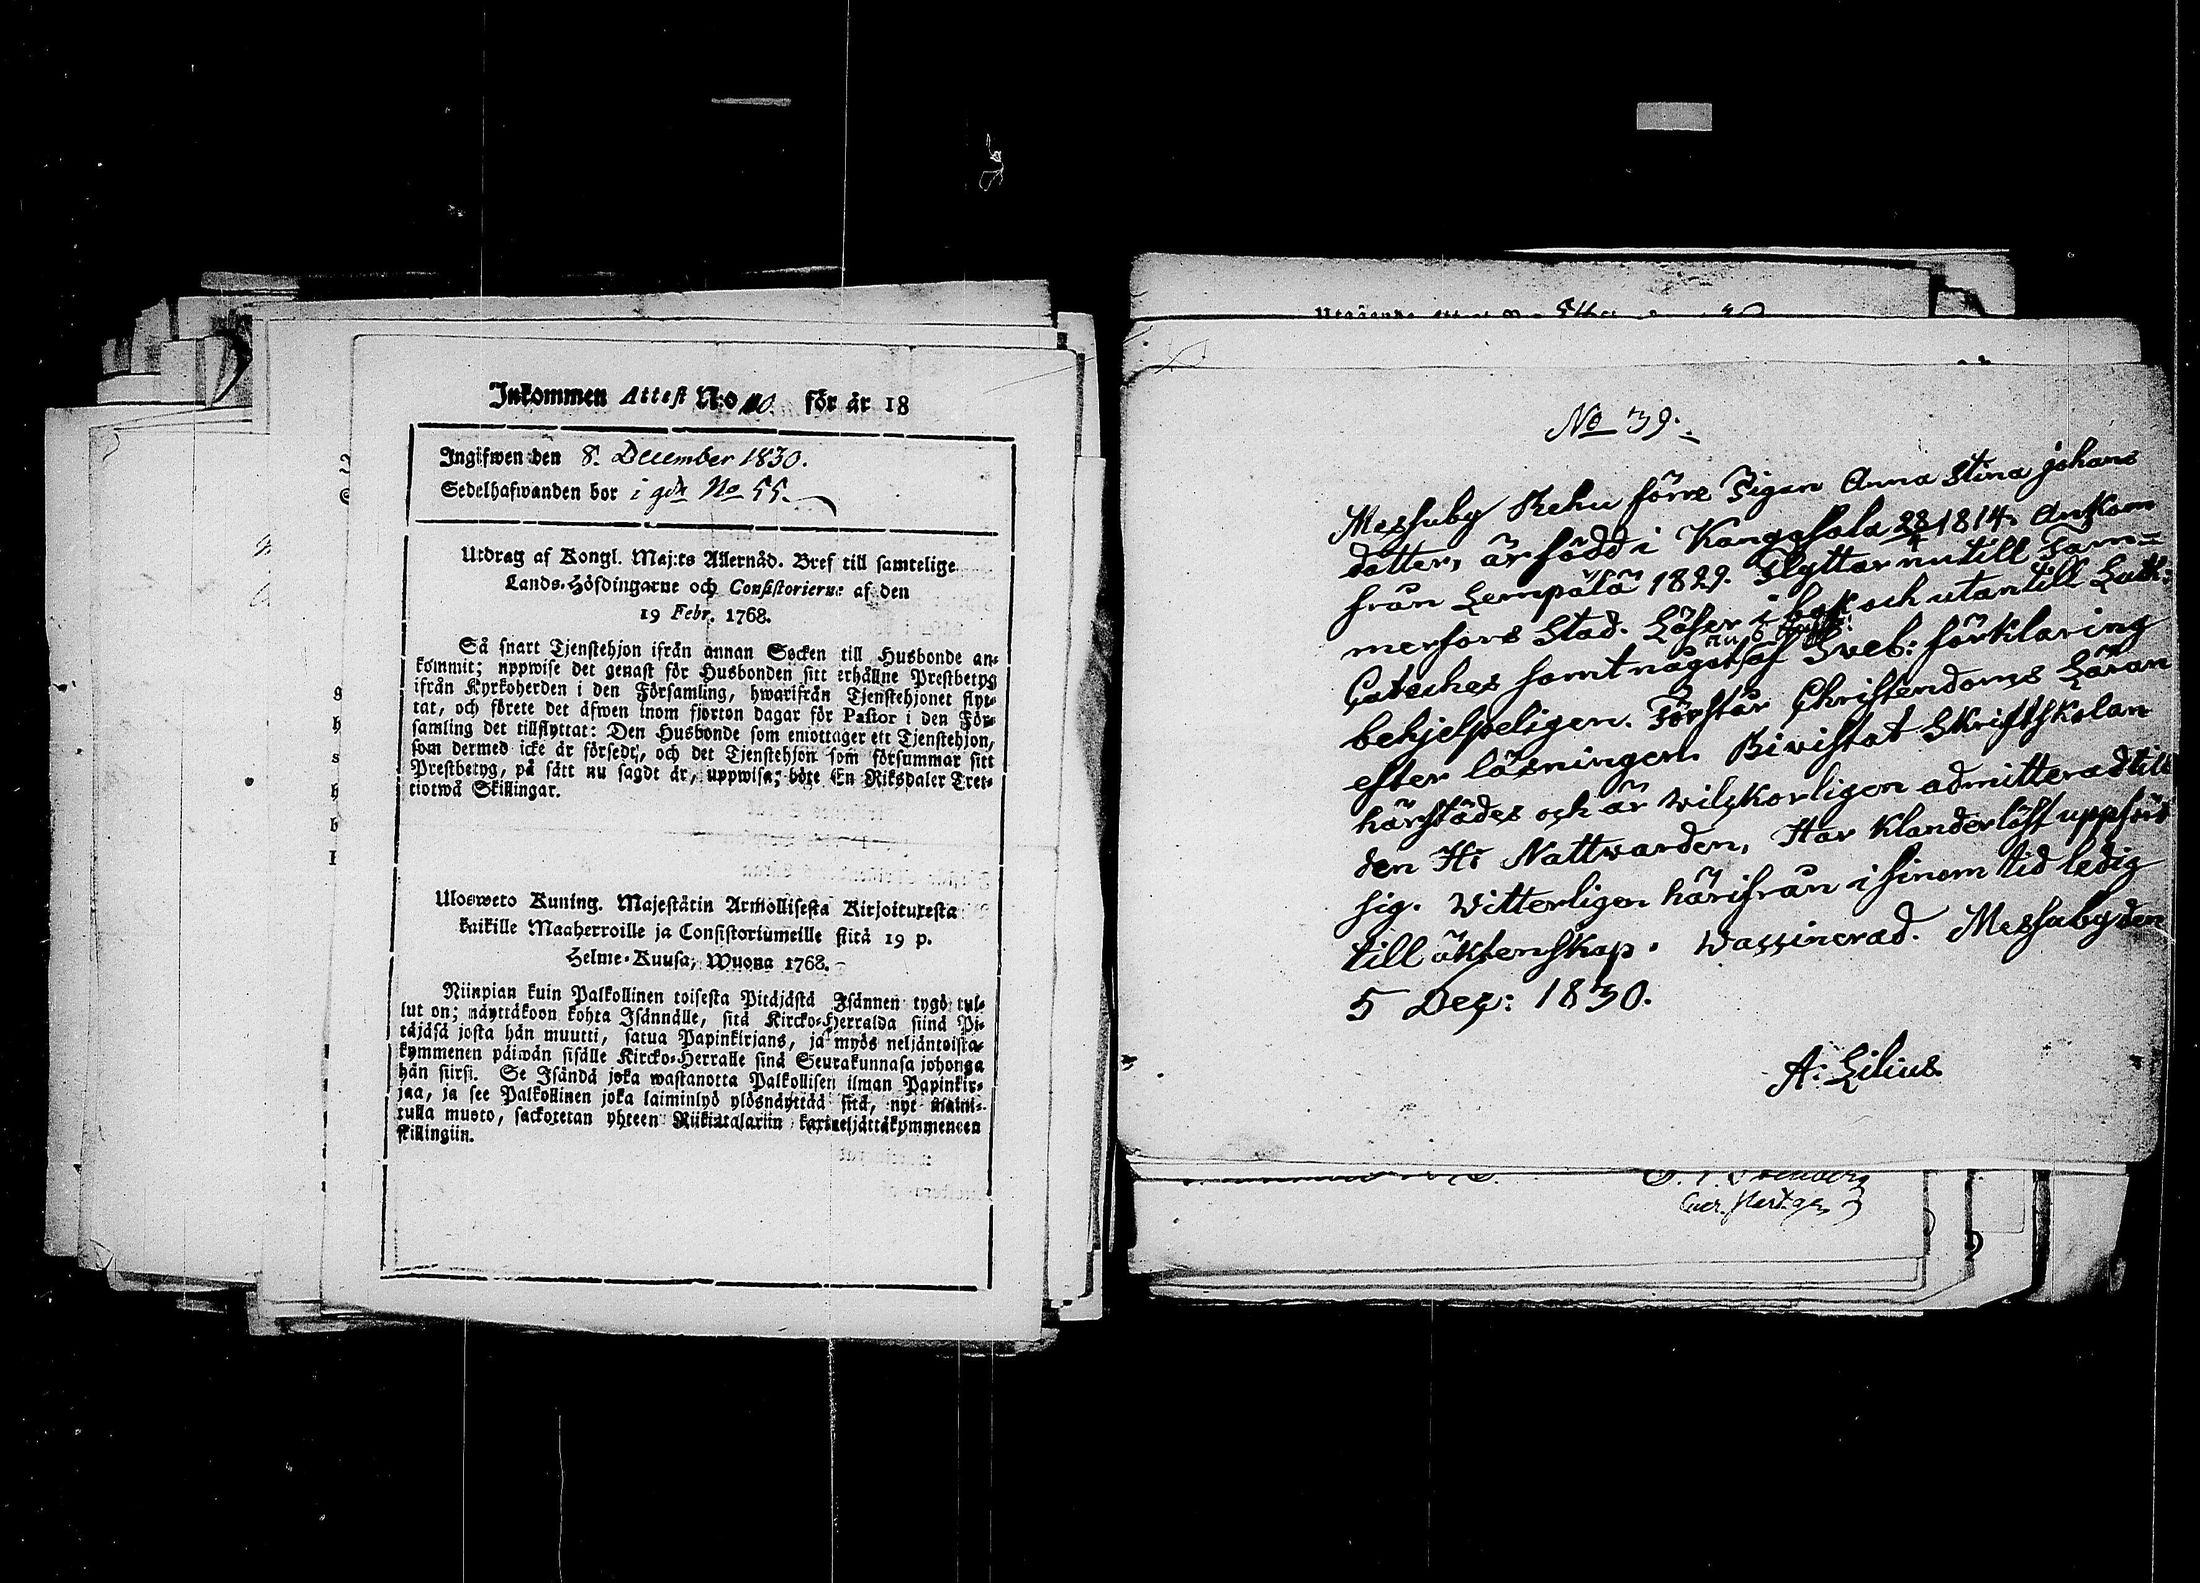 Inkommen Attest N:o 110. för år 18
Ingifwen den 8. December 1830.
Sedelhafwanden bor i gdn No 55.
Utdrag af Kongl. Maj:ts Allernåd. Bref till samtelige
Lands-Höfdingarne och Consistorierne af den
19 Febr. 1768.
Så snart Tjenstehjon ifrån annan Socken till Husbonde an-
kommit; uppwise det genast för Husbonden sitt erhållne Prestbetyg
ifrån Kyrkoherden i den Församling, hwarifrån Tjenstehjonet flyt-
tat, och förete det äfwen inom fjorton dagar för Pastor i den För-
samling det tillflyttat: Den Husbonde som emottager ett Tjenstehjon,
som dermed icke är försedt, och det Tjenstehjon som försummar sitt
Prestbetyg, på sätt nu sagdt är, uppwisa; böte En Riksdaler Tret-
tiotwå Skillingar.
Ulosweto Kuning. Majestätin Armollisesta Kirjoituxesta
kaikille Maaherroille ja Consistoriumeille siitä 19 p.
Helme-Kuusa, Wuona 1768.
Niinpian kuin Palkollinen toisesta Pitäjästä Isännen tygö tul-
lut on; näyttäkoon kohta Isännälle, sitä Kircko-Herralda siinä Pi-
täjäsä josta hän muutti, saatua Papinkirjans, ja myös neljäntoista-
kymmenen päiwän sisälle Kircko-Herralle siinä Seurakunnasa johonga
hän siirsi. Se Isändä joka wastanotta Palkollisen ilman Papinkir-
jaa, ja see Palkollinen joka laiminlyö ylösnäyttää sitä, nyt maini-
tulla muoto, sackotetan yhteen Riikintalariin kaxineljättäkymmeneen
skillingiin.
No 39.
Messuby Rehu förre Pigan Anna Stina Johans
dotter, är född i Kangasala 28/4 1814. Ankom
från Lempälä 1829. Flyttar nu till Tam-
merfors Stad. Läser i bok och utantill Luth:
Cateches samt något af Sveb: förklaring
behjelpeligen. Förstår Christendoms Läran
efter läsningen. Bivistat Skriftskolan
härstädes och är wilskorligen admitterad till
den H: Nattwarden, Har klanderlöst uppfört
sig. Witterligen härifrån i sinom tid ledig
till äktenskap. Waccinerad. Messuby den
5 Dec: 1830.
A: Lilius